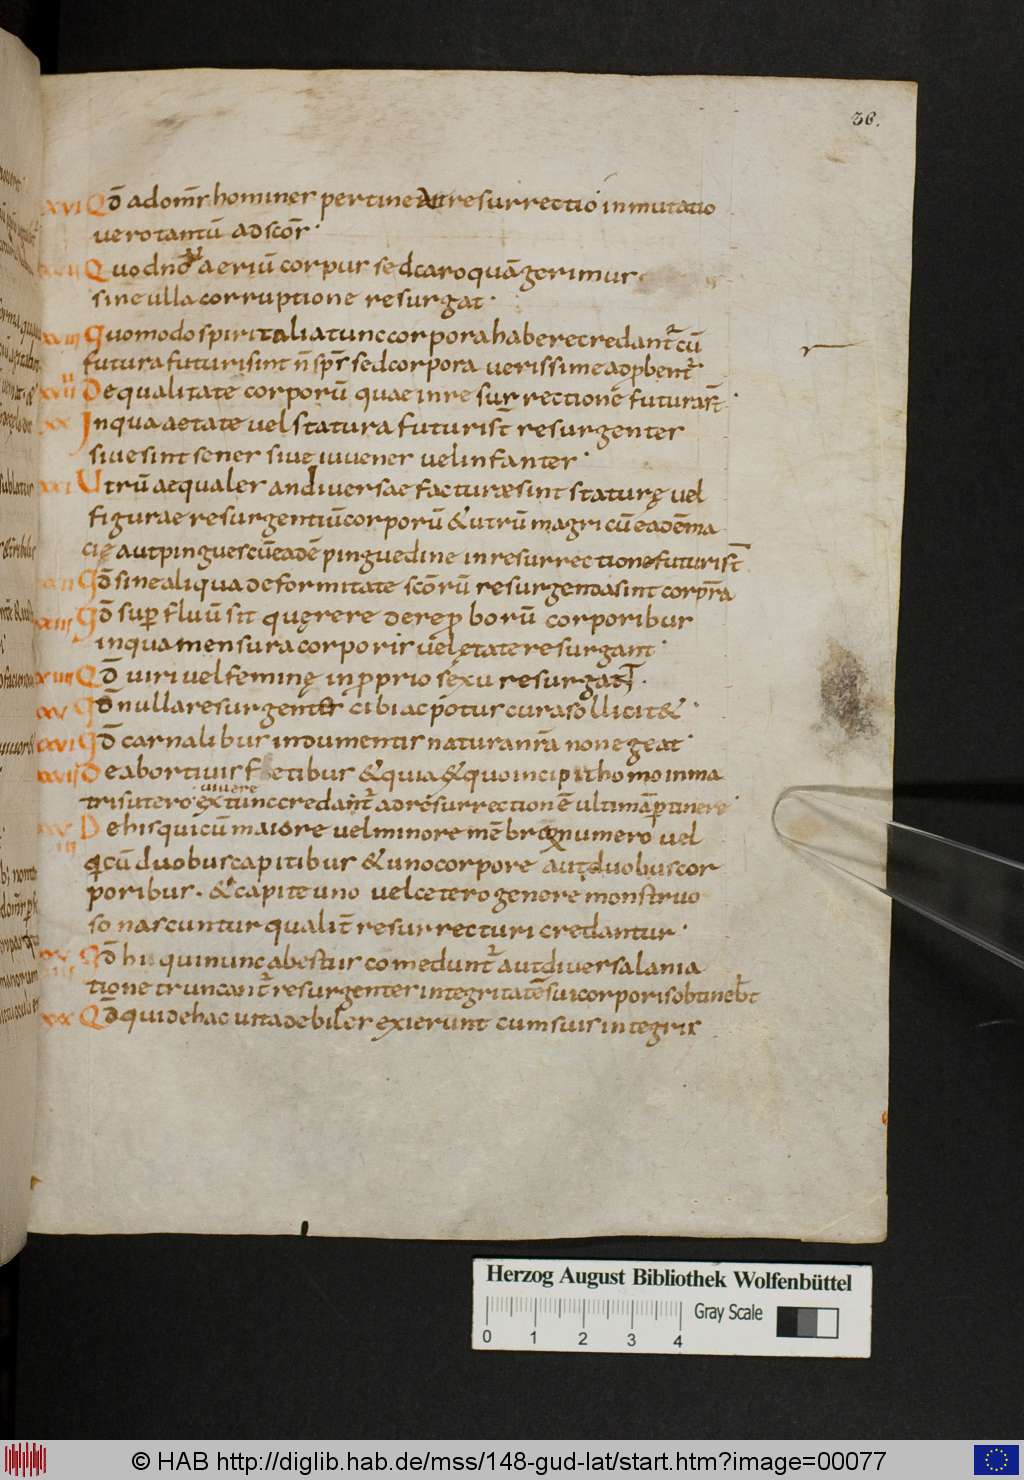 36.
xvi Qđ ad om̄s homines pertineat resurrectio inmutatio
vero tantū ad scōs.
Quod nō aeriū corpus sed caro quā gerimus
sine ulla corruptione resurgat.
Quomodo spiritalia tunc corpora habere credant̄ cū
futura futuri sint n̄ sp̄s sed corpora verissime ad p̱bent̄
De qualitate corporū quae in resurrectione futura st̄.
xx In qua aetate vel statura futuri st̄ resurgentes
sive sint senes sive iuvenes vel infantes.
xxi Utrū aequales an diversae facturae sint staturę vel
figurae resurgentiū corporū & utrū magri cū eadē ma
cię aut pingues cū eadē pinguedine in resurrectione futuri st̄
Qđ sine aliqua deformitate scōrū resurgenda sint corp̄ra
xxiii Qđ sup̱fluū sit quęrere de rep̱borū corporibus
in qua mensura corporis vel ętate resurgant.
Qđ viri vel feminę in p̱prio sexu resurgant.
xxv Qđ nulla resurgentes cibi ac potus cura sollicit&.
xxvi Qđ carnalibus indumentis natura nr̄a non egeat.
xxvii De abortivis fetibus & quia & quo incipit homo in ma
vivere
tris utero ex tunc credant̄ ad resurrectionē ultimā p̱tinere.
De his qui cū maiore vel minore mēbrorū numero vel
qi cū duobus capitibus & uno corpore aut duobus cor
poribus. & capite uno vel cetero genere monstruo
so nascuntur qualit̄ resurrecturi credantur.
Qđ hii qui nunc a bestiis comedunt̄ aut diversa lania
tione truncant̄ resurgentes integritatē sui corporis obtineb̄t
xxx Qđ qui de hac vita debiles exierunt cum suis integris
Herzog August Bibliothek Wolfenbüttel
Gray Scale
0 1 2 3 4
© HAB http://diglib.hab.de/mss/148-gud-lat/start.htm?image=00077